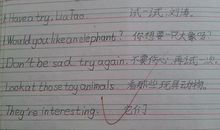 Have a try, Liu Tao. 试一试, 刘涛。
Would you like an elephant? 你想要一只大象吗?
Don't be sad, try again. 不要伤心, 再试一次。
Look at those toy animals. 看那些玩具动物。
They're interesting. 它们